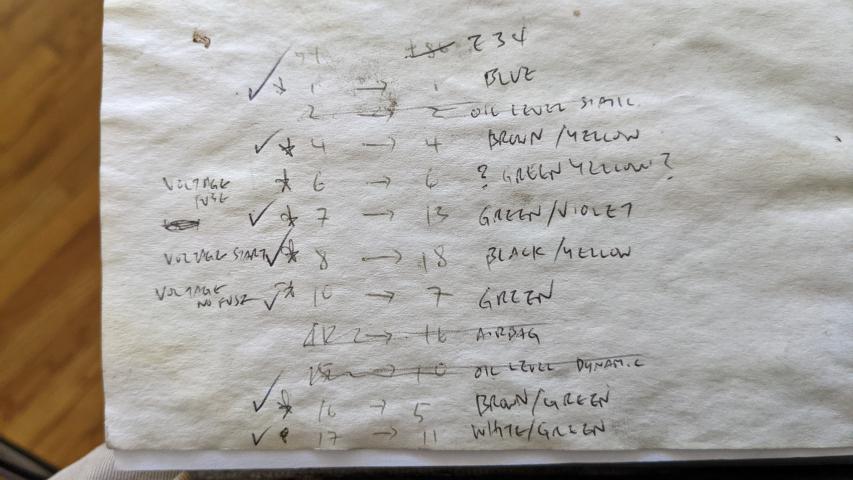 E34
✓ * 1 → 1 BLUE
2 → 2 OIL LEVEL STATIC
✓ * 4 → 4 BROWN/YELLOW
* 6 → 6 ? GREEN YELLOW ?
VOLTAGE FUSE ✓ * 7 → 13 GREEN/VIOLET
VOLTAGE START ✓ * 8 → 18 BLACK/YELLOW
VOLTAGE NO FUSE ✓ * 10 → 7 GREEN
→ 16 AIRBAG
→ 10 OIL LEVEL DYNAMIC
✓ * 16 → 5 BROWN/GREEN
✓ 17 → 11 WHITE/GREEN